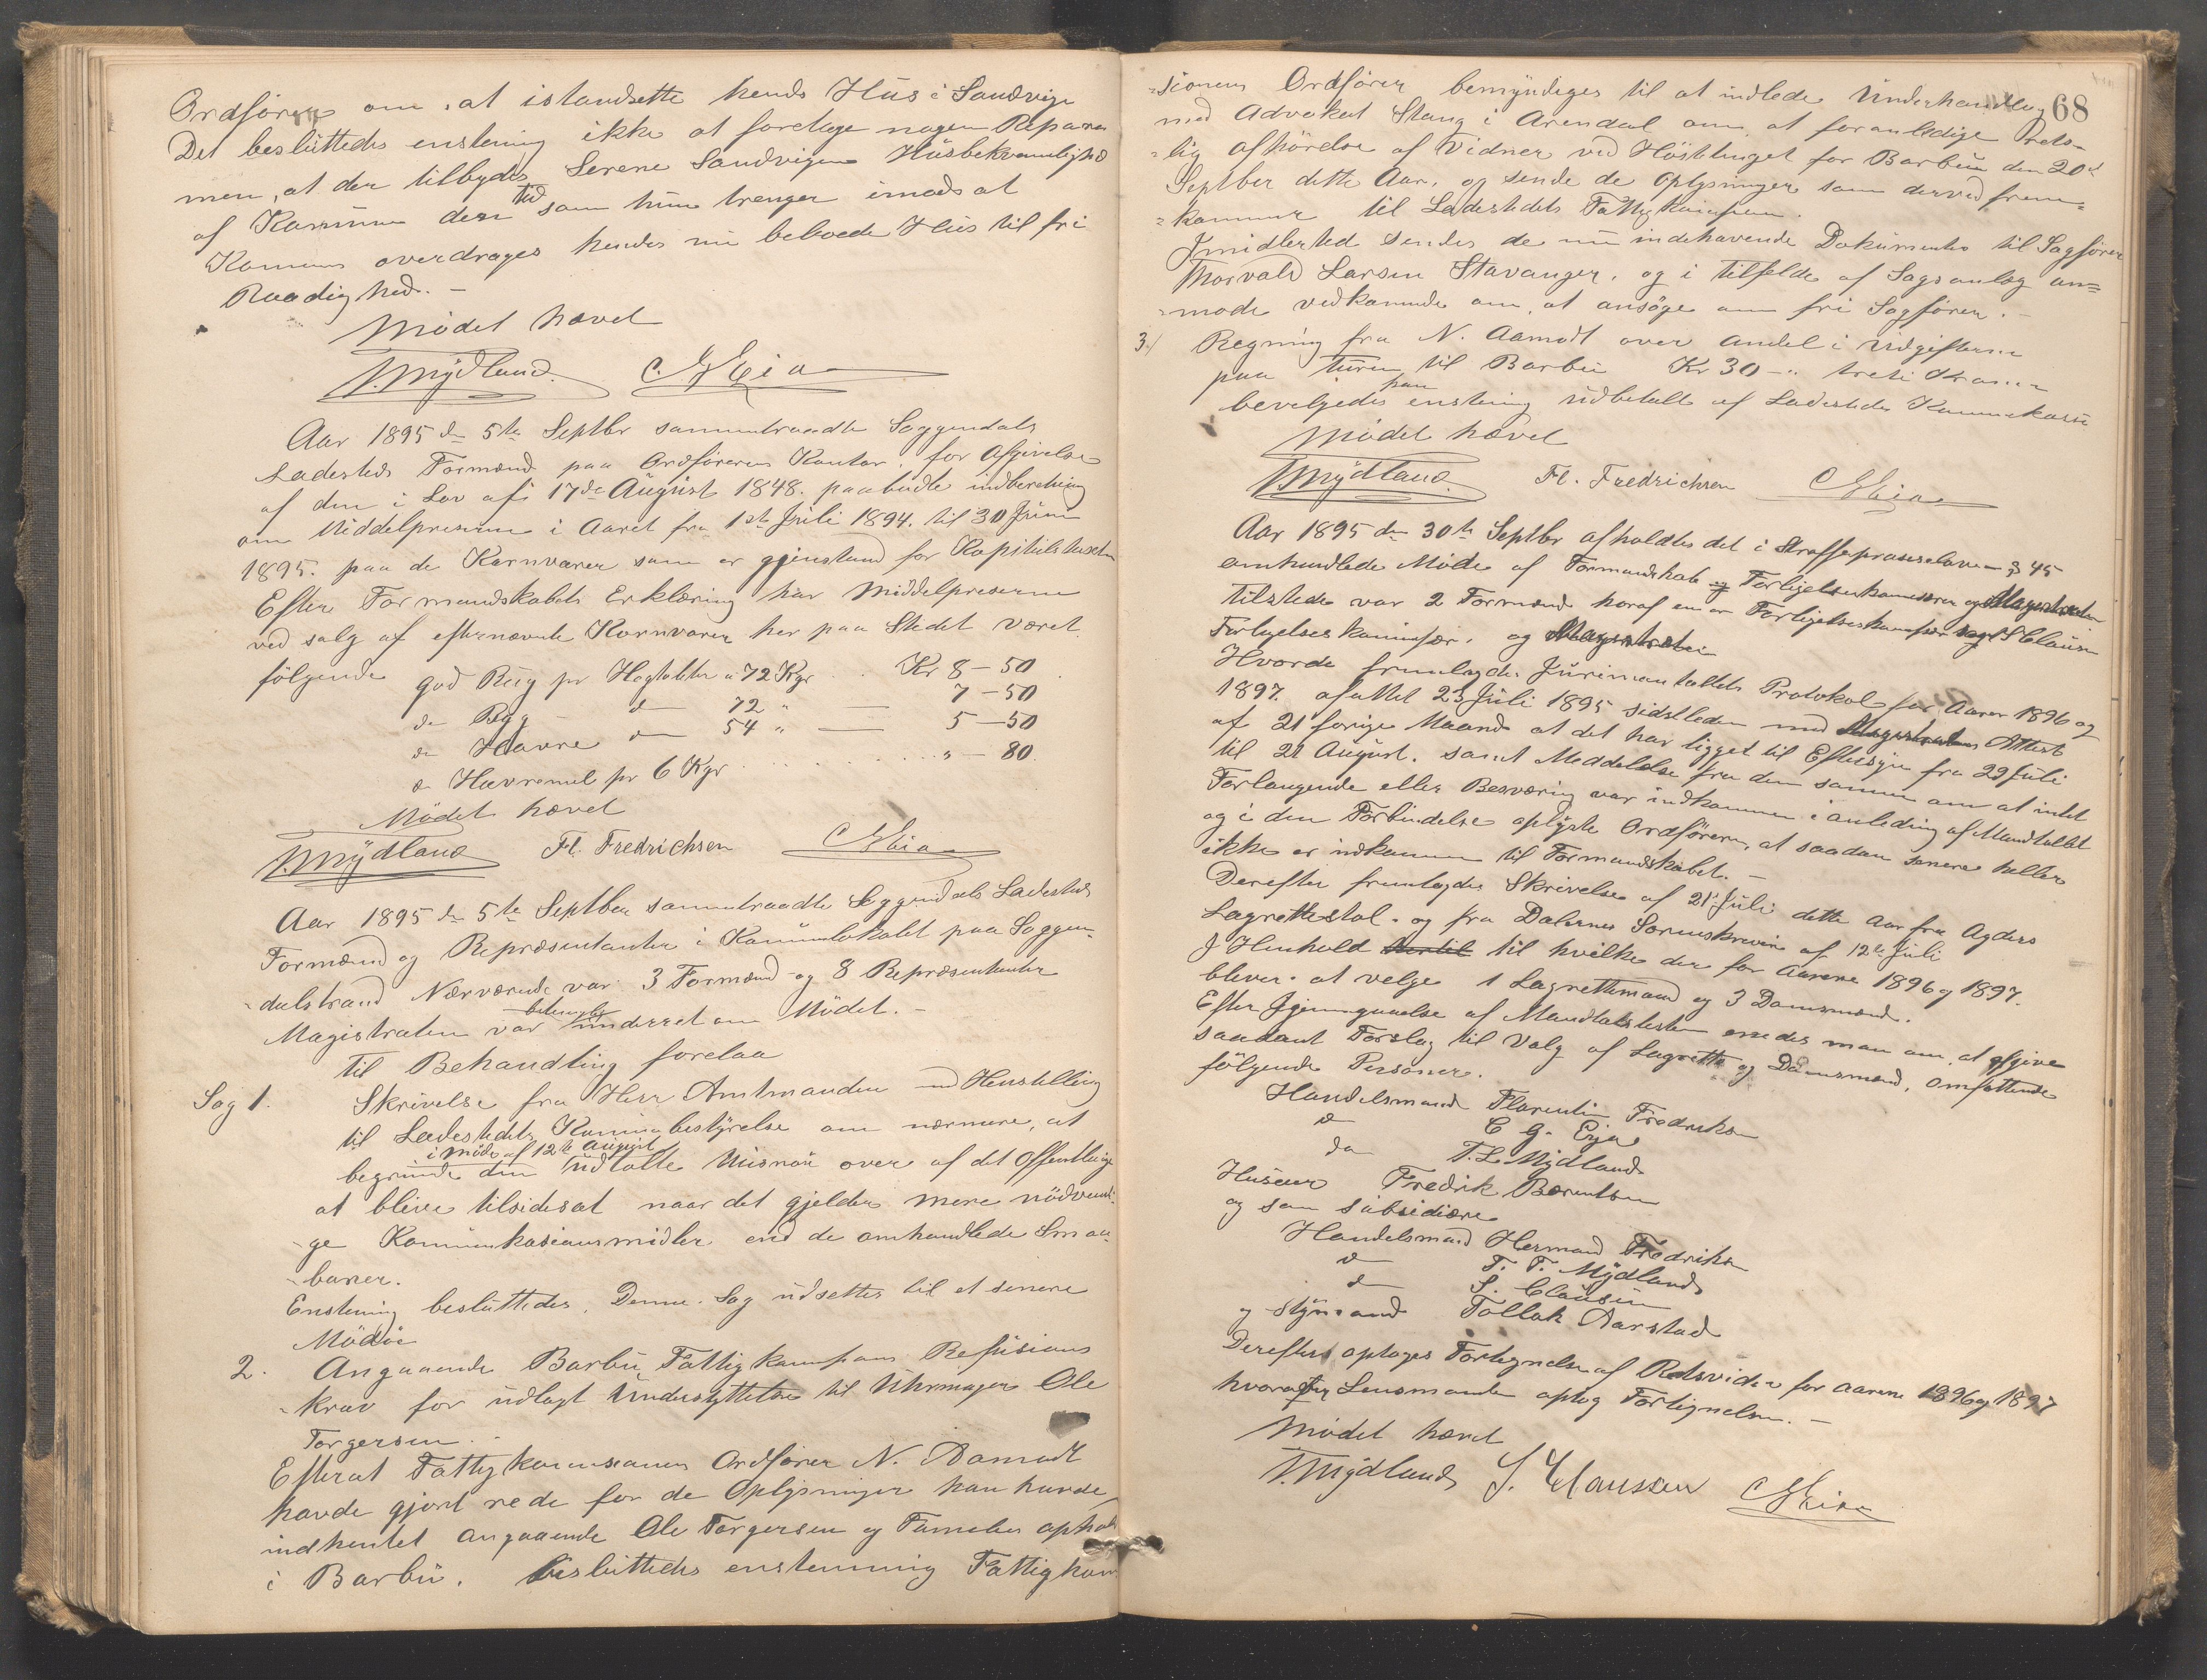 Ordføreren om, at istandsette hends Hus i Sandvige
Det besluttedes enstemig ikke at foretage nogen Reparas
men, at der tilbydes Serene Sandvigen Husbekvemlighed
af Komunen den tid som hun trenger imods at
Komunen overdrages hendes nu beboede Hus til fri
Raadighed. -
Mødet hævet
T. Mydland. C G Eia
Aar 1895 dn 5te Septbr sammentraadte Soggendals
Ladesteds Formænd paa Ordførerens Kontor, for Afgivelse
af den i Lov afs 17de August 1848. paabudte indberetning
om Middelpriserne i Aaret fra 1ste Juli 1894. til 30 Juni
1895. paa de Kornvarer som er gjenstand for Kapitulstaxten
Efter Formandskabets Erklæring har Middelpriserne
ved salg af efternævnte Kornvarer her paa Stedet været
følgende god Rug pr Hegtoliter a 72 Kgr .. Kr 8-50
do Bygg do 72 " 7-50
do Havre do 54 " 5-50
do Havremel pr 6 Kgr . . . . . . . " - 80
Mødet hævet
T. Mydland Fl. Fredrichsen C G Eia
Aar 1895 dn 5te Septber sammentraadte Soggendals Ladesteds
Formænd og Repræsentanter i Komunelokalet paa Soggen-
-dalstrand Nærværende var 3 Formænd og 8 Repræsentanter
Magistraten var betimelig underret om Mødet. -
Til Behandling forelaa
Sag 1. Skrivelse fra Herr Amtmanden md Henstilling
til Ladestedets Komunebestyrelse om nærmere, at
i Møde af 12te August
begrunde den udtalte Misnøie over af det Offentlige
at blive tilsidesat naar det gjelder mere nødvendi-
-ge Komunikasionsmidler end de omhandlede Smaa-
-baner.
Enstemig besluttedes, Denne Sag udsettes til et senere
Møde
2. Angaaende Barbu Fattigkomisions Refusions
-krav for udlagt Understyttelse til Uhrmager Ole
Torgersen. -
Efterat Fattigkomisionens Ordfører N. Aamodt
havde gjort rede for de Oplysninger han havde
indhentet angaaende Ole Torgersen og Families ophold
i Barbu. besluttedes enstemmig Fattigkom
68
-sionens Ordfører bemyndiges til at indlede Underhandling
med Advokat Stang i Arendal om, at foranledige Rets-
-lig afhørelse af Vidner ved Høstthinget for Barbu den 20d
Septber dette Aar, og sende de oplysninger som derved frem-
-kommer til Ladestedets Fattigkomision.
Imidlertid sendes de nu indehavende Dokumenter til Sagfører
Thorvald Larsen Stavanger, og i tilfelde af Sagsanlæg an-
-mode vedkommende om, at ansøge om fri Sagfører. -
3./ Regning fra N. Aamodt over andel i Udgifterne
paa turen til Barbu Kr 30-" treti Kroner
bevilgedes enstemig udbetalt af Ladestedes Kommunekasse
Mødet hævet
T. Mydland. Fl. Fredrichsen C G Eia
Aar 1895 dn 30te Septbr afholdtes det i Straffeprosesloven § 45
omhandlede Møde af Formandskab og Forligelseskomisærer og Magistraten
tilstede var 2 Formænd horaf en er Forligelseskomisær samt S Clausen
Forligelseskomisær. og Magistraten
Hvorde fremlagdes Jurimantallets Protokol for Aarene 1896 og
1897. afattet 23 Juli 1895 sidstleden med Magistratens Attest
af 21 forrige Maaned at det har ligget til Eftersyn fra 29 Juli
til 21 August. samt Meddelelse fra den samme om at intet
Forlangende eller Besværing var indkommen i anledning af Mandtallet
og i den Forbindelse oplyste Ordføreren, at saadan senere heller
ikke er indkommen til Formandskabet. -
Derefter fremlagdes Skrivelse af 21' Juli dette Aar fra Agders
Lagrettestol. og fra Dalernes Sorenskriveri af 12te Juli
I Henhold hertil til hvilke der for Aarene 1896 og 1897.
bliver at velge 1 Lagrettemand og 3 Domsmænd.
Efter Igjennemgaaelse af Mandtalslisten enedes man om, at afgive
saadant Forslag til Valg af Lagrette og Domsmænd, omfattende
følgende Personer.
Handelsmand Florentin Fredriksen
do C G. Eja
do T. L. Mydland
Huseier Fredrik Berentsen
og som subsidiære
Handelsmand Herman Fredriksen
do T. T. Mydland
do S. Clausen
og Styrmand Tollak Aarstad
Derefter optages Fortegnelse af Retsvidner for Aarene 1896 og 1897
hvorefter Lensmanden optog Fortegnelsen. -
Mødet hævet
T. Mydland S. Claussen C G Eia